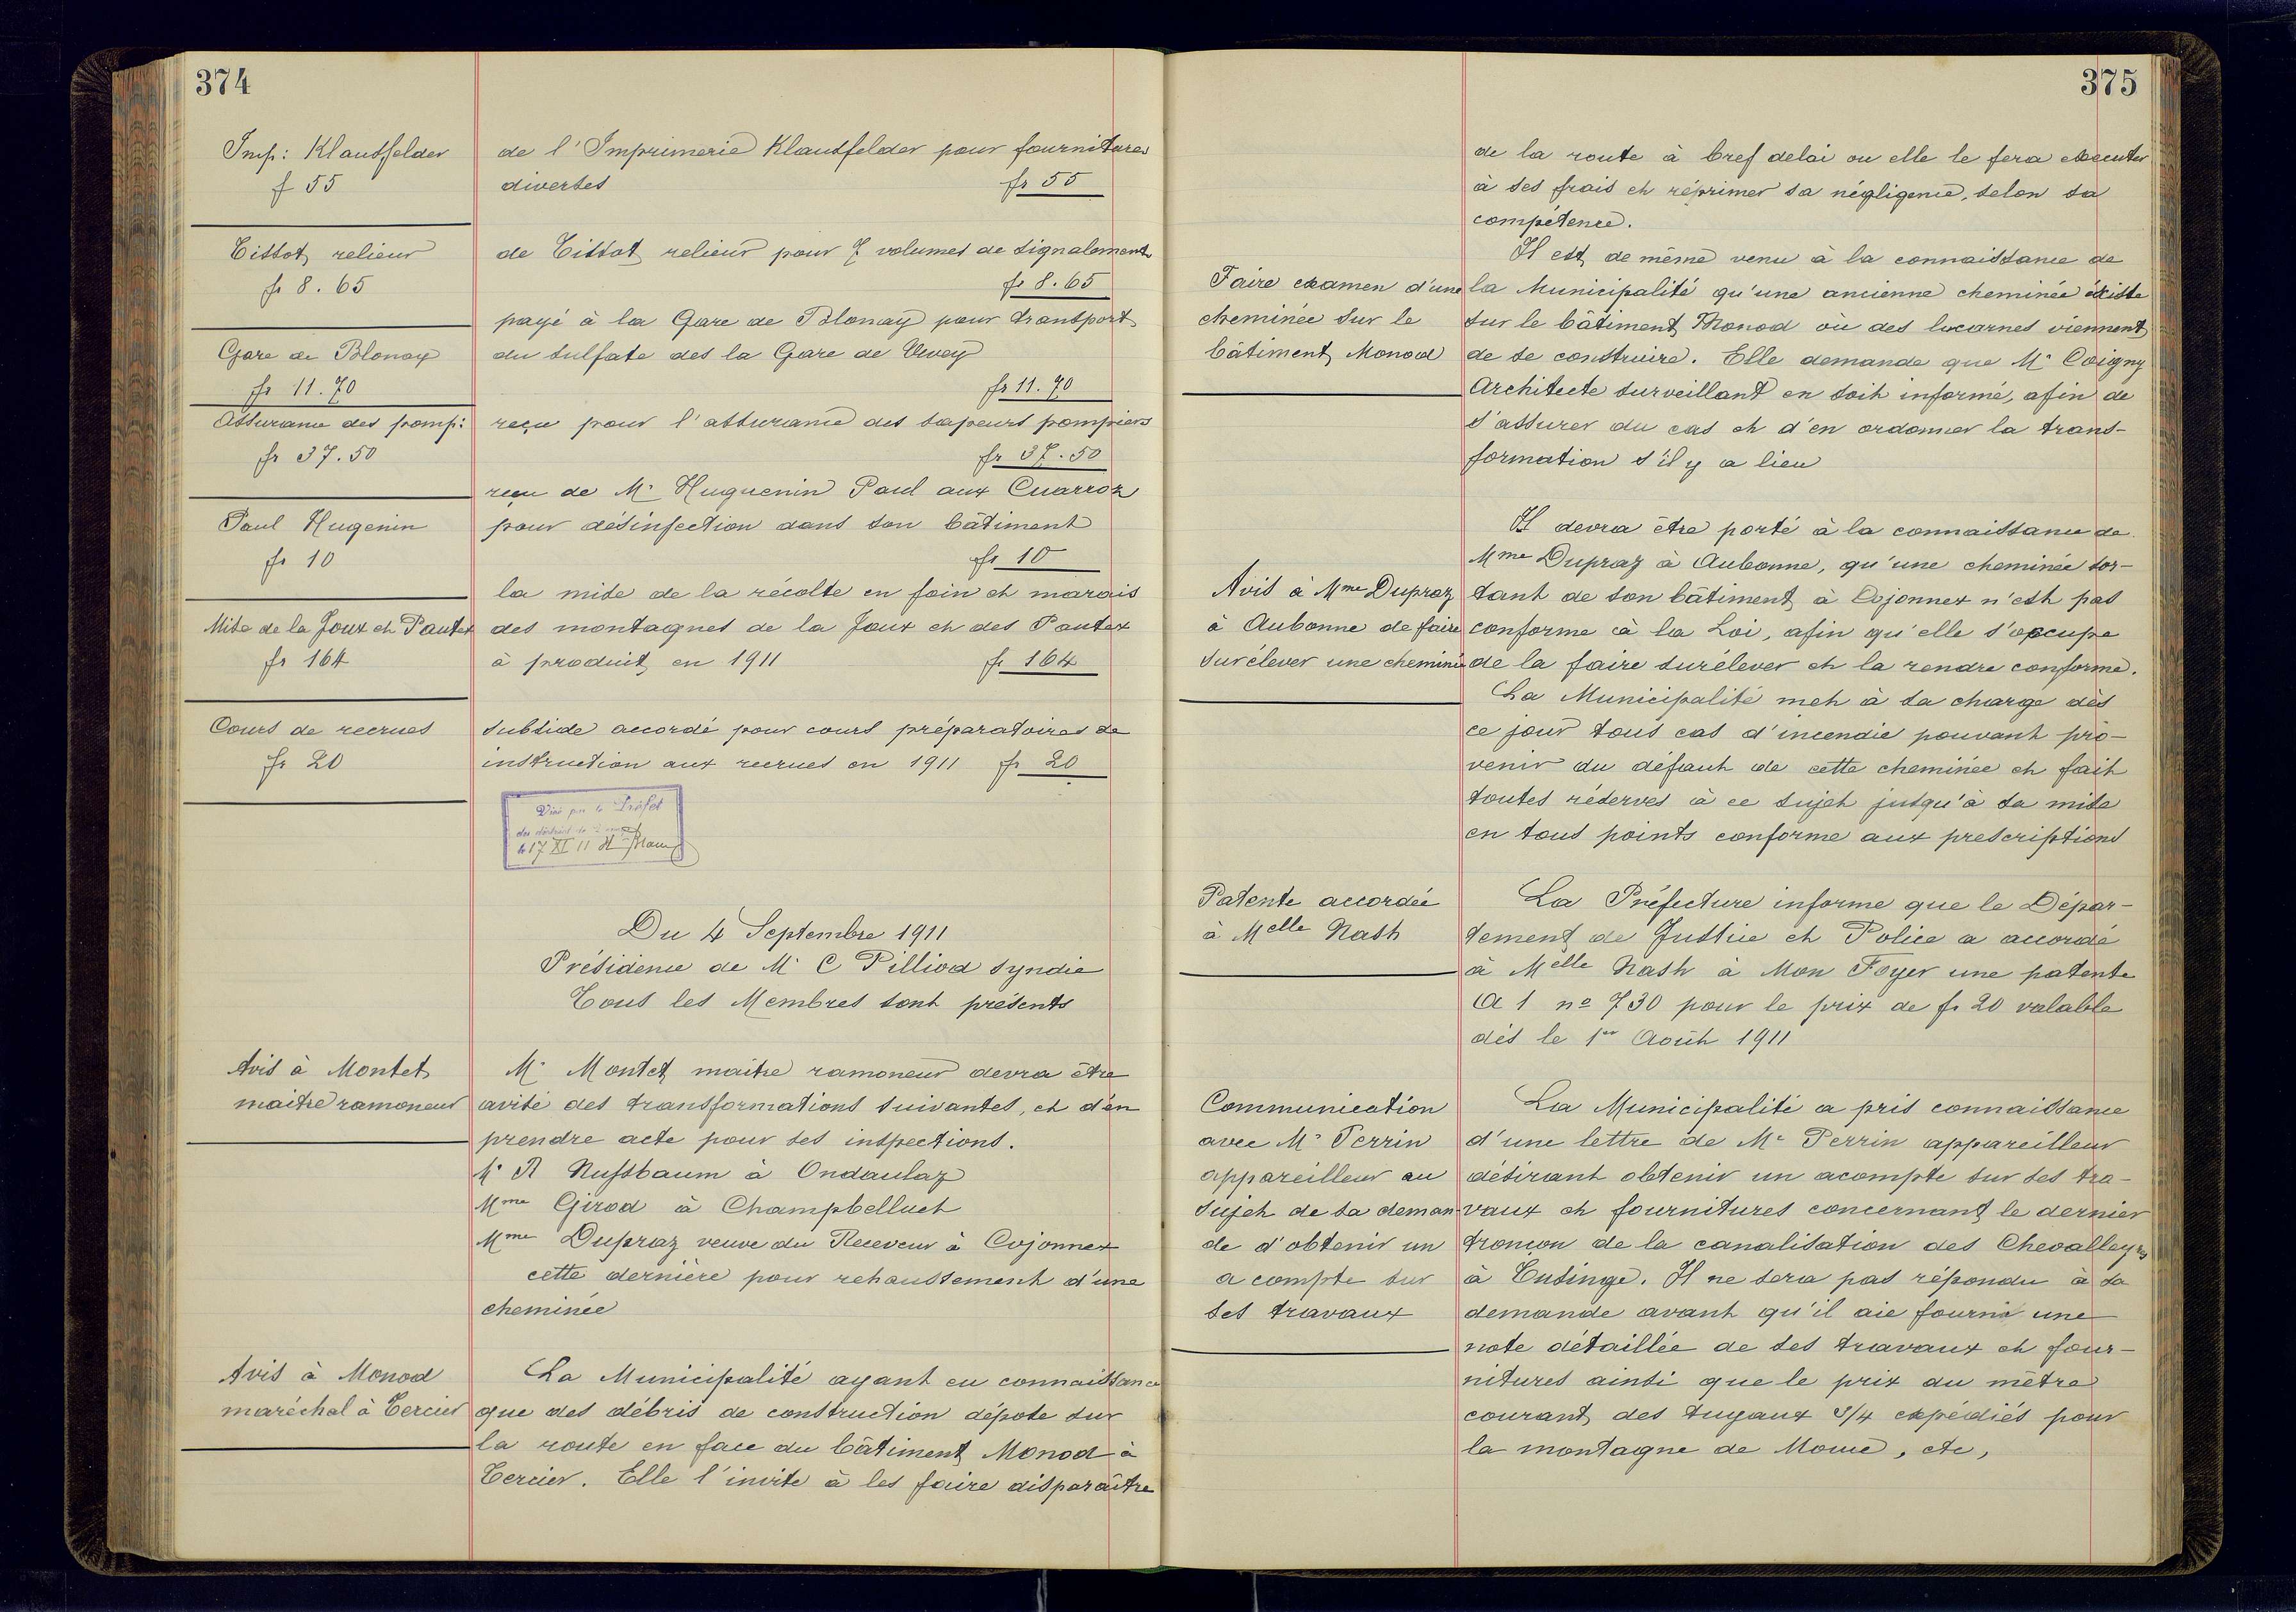 374
Imp: Klausfelder
f 55
de l'Imprimerie Klausfelder pour fournitures
diverses fr 55
Tissot relieur
fr 8.65
de Tissot relieur pour 7 volumes de signalements
fr 8.65
Gare de Blonay
fr 11.70
payé à la Gare de Blonay pour transport
du sulfate des la Gare de Vevey
fr 11.70
Assurance des pomp:
fr 37.50
reçu pour l'assurance des sapeurs pompiers
fr 37.50
Paul Hugenin
fr 10
reçu de Mr Huguenin Paul aux Cuarroz
pour désinfection dans son bâtiment
fr 10
Mise de la Joux et Pautex
fr 164
la mise de la récolte en foin et marais
des montagnes de la Joux et des Pautex
à produit en 1911 fr 164
Cours de recrues
fr 20
subside accordé pour cours préparatoires de
instruction aux recrues en 1911 fr 20
Visé par le Préfet
du district de
17 XI 11
Du 4 Septembre 1911
Présidence de Mr C Pilliod syndic
Tous les Membres sont présents
Avis à Montet
maitre ramoneur
Mr Montet maitre ramoneur devra être
avisé des transformations suivantes, et d'en
prendre acte pour ses inspections.
Mr R Nussbaum à Ondaulaz
Mme Girod à Champbelluet
Mme Dupraz veuve du Receveur à Cojonnex
cette dernière pour rehaussement d'une
cheminée
Avis à Monod
maréchal à Tercier
La Municipalité ayant eu connaissance
que des débris de construction dépose sur
la route en face du bâtiment Monod à
Tercier. Elle l'invite à les faire disparaître
375
de la route à bref delai ou elle le fera executer
à ses frais et réprimer sa négligence, selon sa
compétence.
Faire examen d'une
cheminée sur le
bâtiment Monod
Il est de même venu à la connaissance de
la Municipalité qu'une ancienne cheminée éxiste
sur le bâtiment Monod où des lucarnes viennent
de se construire. Elle demande que Mr Coigny
Architecte surveillant en soit informé, afin de
s'assurer du cas et d'en ordonner la trans-
formation s'il y a lieu
Avis à Mme Dupraz
à Aubonne de faire
surélever une cheminée
Il devra être porté à la connaissance de
Mme Dupraz à Aubonne, qu'une cheminée sor-
tant de son bâtiment à Cojonnex n'est pas
conforme à la Loi, afin qu'elle s'occupe
de la faire surélever et la rendre conforme.
La Municipalité met à sa charge dès
ce jour tous cas d'incendie pouvant pro-
venir du défaut de cette cheminée et fait
toutes réserves à ce sujet jusqu'à sa mise
en tous points conforme aux prescriptions
Patente accordée
à Melle Nash
La Préfecture informe que le Dépar-
tement de Justice et Police a accordé
à Melle Nash à Mon Foyer une patente
A 1 no 730 pour le prix de fr 20 valable
dès le 1er Août 1911
Communication
avec Mr Perrin
appareilleur au
sujet de sa deman
de d'obtenir un
a compte sur
ses travaux
La Municipalité a pris connaissance
d'une lettre de Mr Perrin appareilleur
désirant obtenir un acompte sur ses tra-
vaux et fournitures concernant le dernier
tronçon de la canalisation des Chevalleyres
à Tusinge. Il ne sera pas répondu à sa
demande avant qu'il aie fourni une
note détaillée de ses travaux et four-
nitures ainsi que le prix du mètre
courant des tuyaux 3/4 expédiés pour
la montagne de , etc,